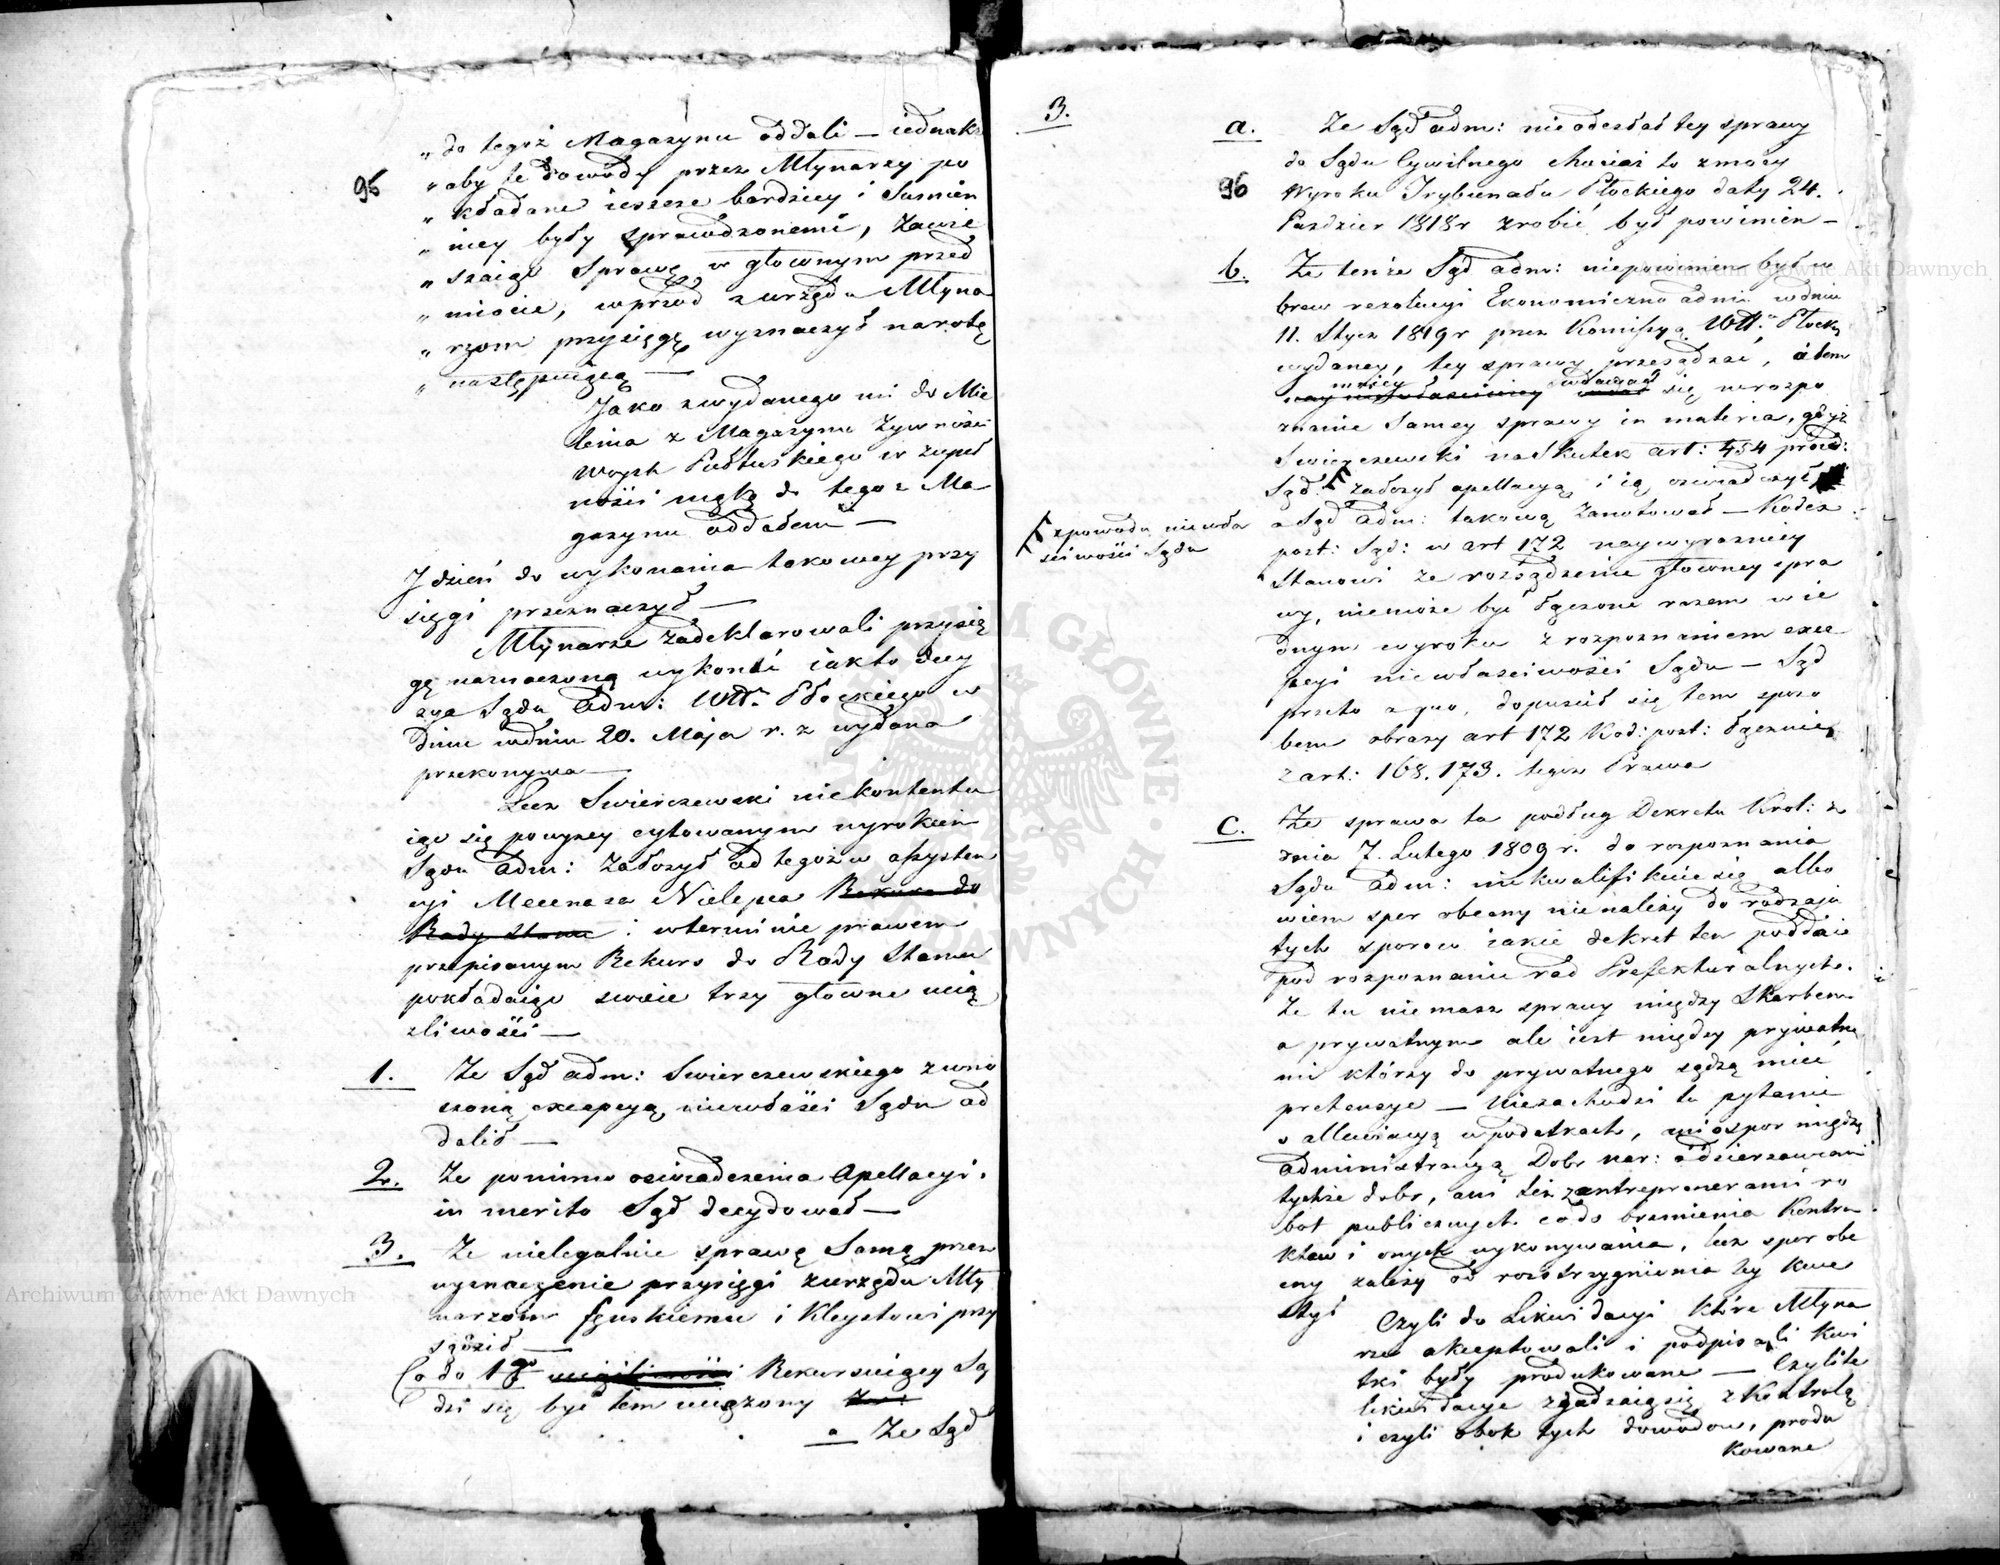 95
„do tegoż Magazynu oddali — iednakże
„aby te dowody przez Młynarzy po
„kładane ieszcze bardziey i Sumien
„niey były sprawdzonemi, zawie
„szaiąc Sprawę w głownym przed
„miocie, wprzod z urzędu Młyna
„rzom przysięgę wyznaczył na rotę
„następuiącą —
Jako z wydanego mi do Mie
lenia z Magazynu żywności
Woysk Pułtuskiego w zupeł
ności mąkę do tegoż Ma
gazynu oddałem —
J dzień do wykonania takowey przy
sięgi przeznaczył —
Młynarze zadeklarowali przysię
gę naznaczoną wykonać iak to decy
zya Sądu Adm: Wdz. Płockiego w
dniu 20. Maja r. z wydana
przekonywa —
Lecz Swierczewski niekontentu
iąc się powyzey cytowanym wyrokiem
Sądu Adm: założył od tegoż w assysten
cyi Mecenasa Nielepca Rekurs do
Rady Stanu i w terminie prawem
przepisanym Rekurs do Rady Stanu
pokładaiąc swoie trzy głowne ucią
zliwości —
1. Ze Sąd adm: Swierczewskiego zwno
szoną excepcyą niewłaści Sądu od
dalił —
2. Ze pomimo oswiadczenia Apellacyi
in merito Sąd decydował —
3. Ze nielegalnie sprawę Samą przez
wyznaczenie przysięgi z urzędu Mły
narzom i Kleystowi przy
sądził —
Co do 1go uciązliwości Rekursuiący Są
dzi się być tem uciązony Ze
a Ze Sąd
3.
96
a. Ze Sąd adm: nieodesłał tey sprawy
do Sądu Cywilnego chociaż to z mocy
Wyroku Trybunału Płockiego daty 24.
Pazdzier 1818 r zrobić był powinien —
b. Ze tenże Sąd adm: niepowinien był w
brew rezolucyi Ekonomiczno adm: w dniu
11. Stycz 1819 r przez Komissyą Wdz. Płocką
wydaney, tey sprawy przesądzać, a tem
mniey wdawać się w rozpo
znanie Samey sprawy in materia, gdyż
Swierczewski na Skutek art: 454 proced:
Sąd: założył apellacyą i ią oswiadczył
a Sąd Adm: takową zanotował — Kodex
z powodu niewła
sciwości Sądu
post: Sąd: w art 172 naywyrazniey
Stanowi ze rozsądzenie głowney spra
wy, niemoże być łączone razem w ie
dnym wyroku z rozpoznaniem exce
pcyi niewłasciwości Sądu — Sąd
przeto a quo, dopuscił się tem sposo
bem obrazy art 172 Kod: post: łącznie
z art: 168. 173. tegoż Prawa
c. Ze sprawa ta podług Dekretu Krol: z
dnia 7. Lutego 1809 r. do rozpoznania
Sądu Adm: niekwalifikuie się albo
wiem spor obecny nienależy do rodzaju
tych sporow iakie dekret ten poddaie
pod rozpoznanie rad Prefekturalnych.
Ze tu niemasz sprawy między Skarbem
a prywatnym ale iest między prywatne
mi którzy do prywatnego sądzą mieć
pretensye — Niezachodzi tu pytanie
o allewiacyą w podatkach, ani spor między
administracyą Dobr nar: a dzierzawcami
tychże dobr, ani też z entreprenerami ro
bot publicznych co do brzmienia Kontra
ktow i onych wykonywania, lecz spor obe
cny zależy od rozstrzygnienia tey kwe
styi
Czyli do Likwidacyi które Młyna
rze akceptowali i podpisali Kwi
tki były produkowane — Czyli te
likwidacye zgadzaią się z Kontrolą
i czyli obok tych dowodow, produ
kowane
Archiwum Główne Akt Dawnych
Archiwum Główne Akt Dawnych
ARCHIWUM GŁÓWNE AKT DAWNYCH